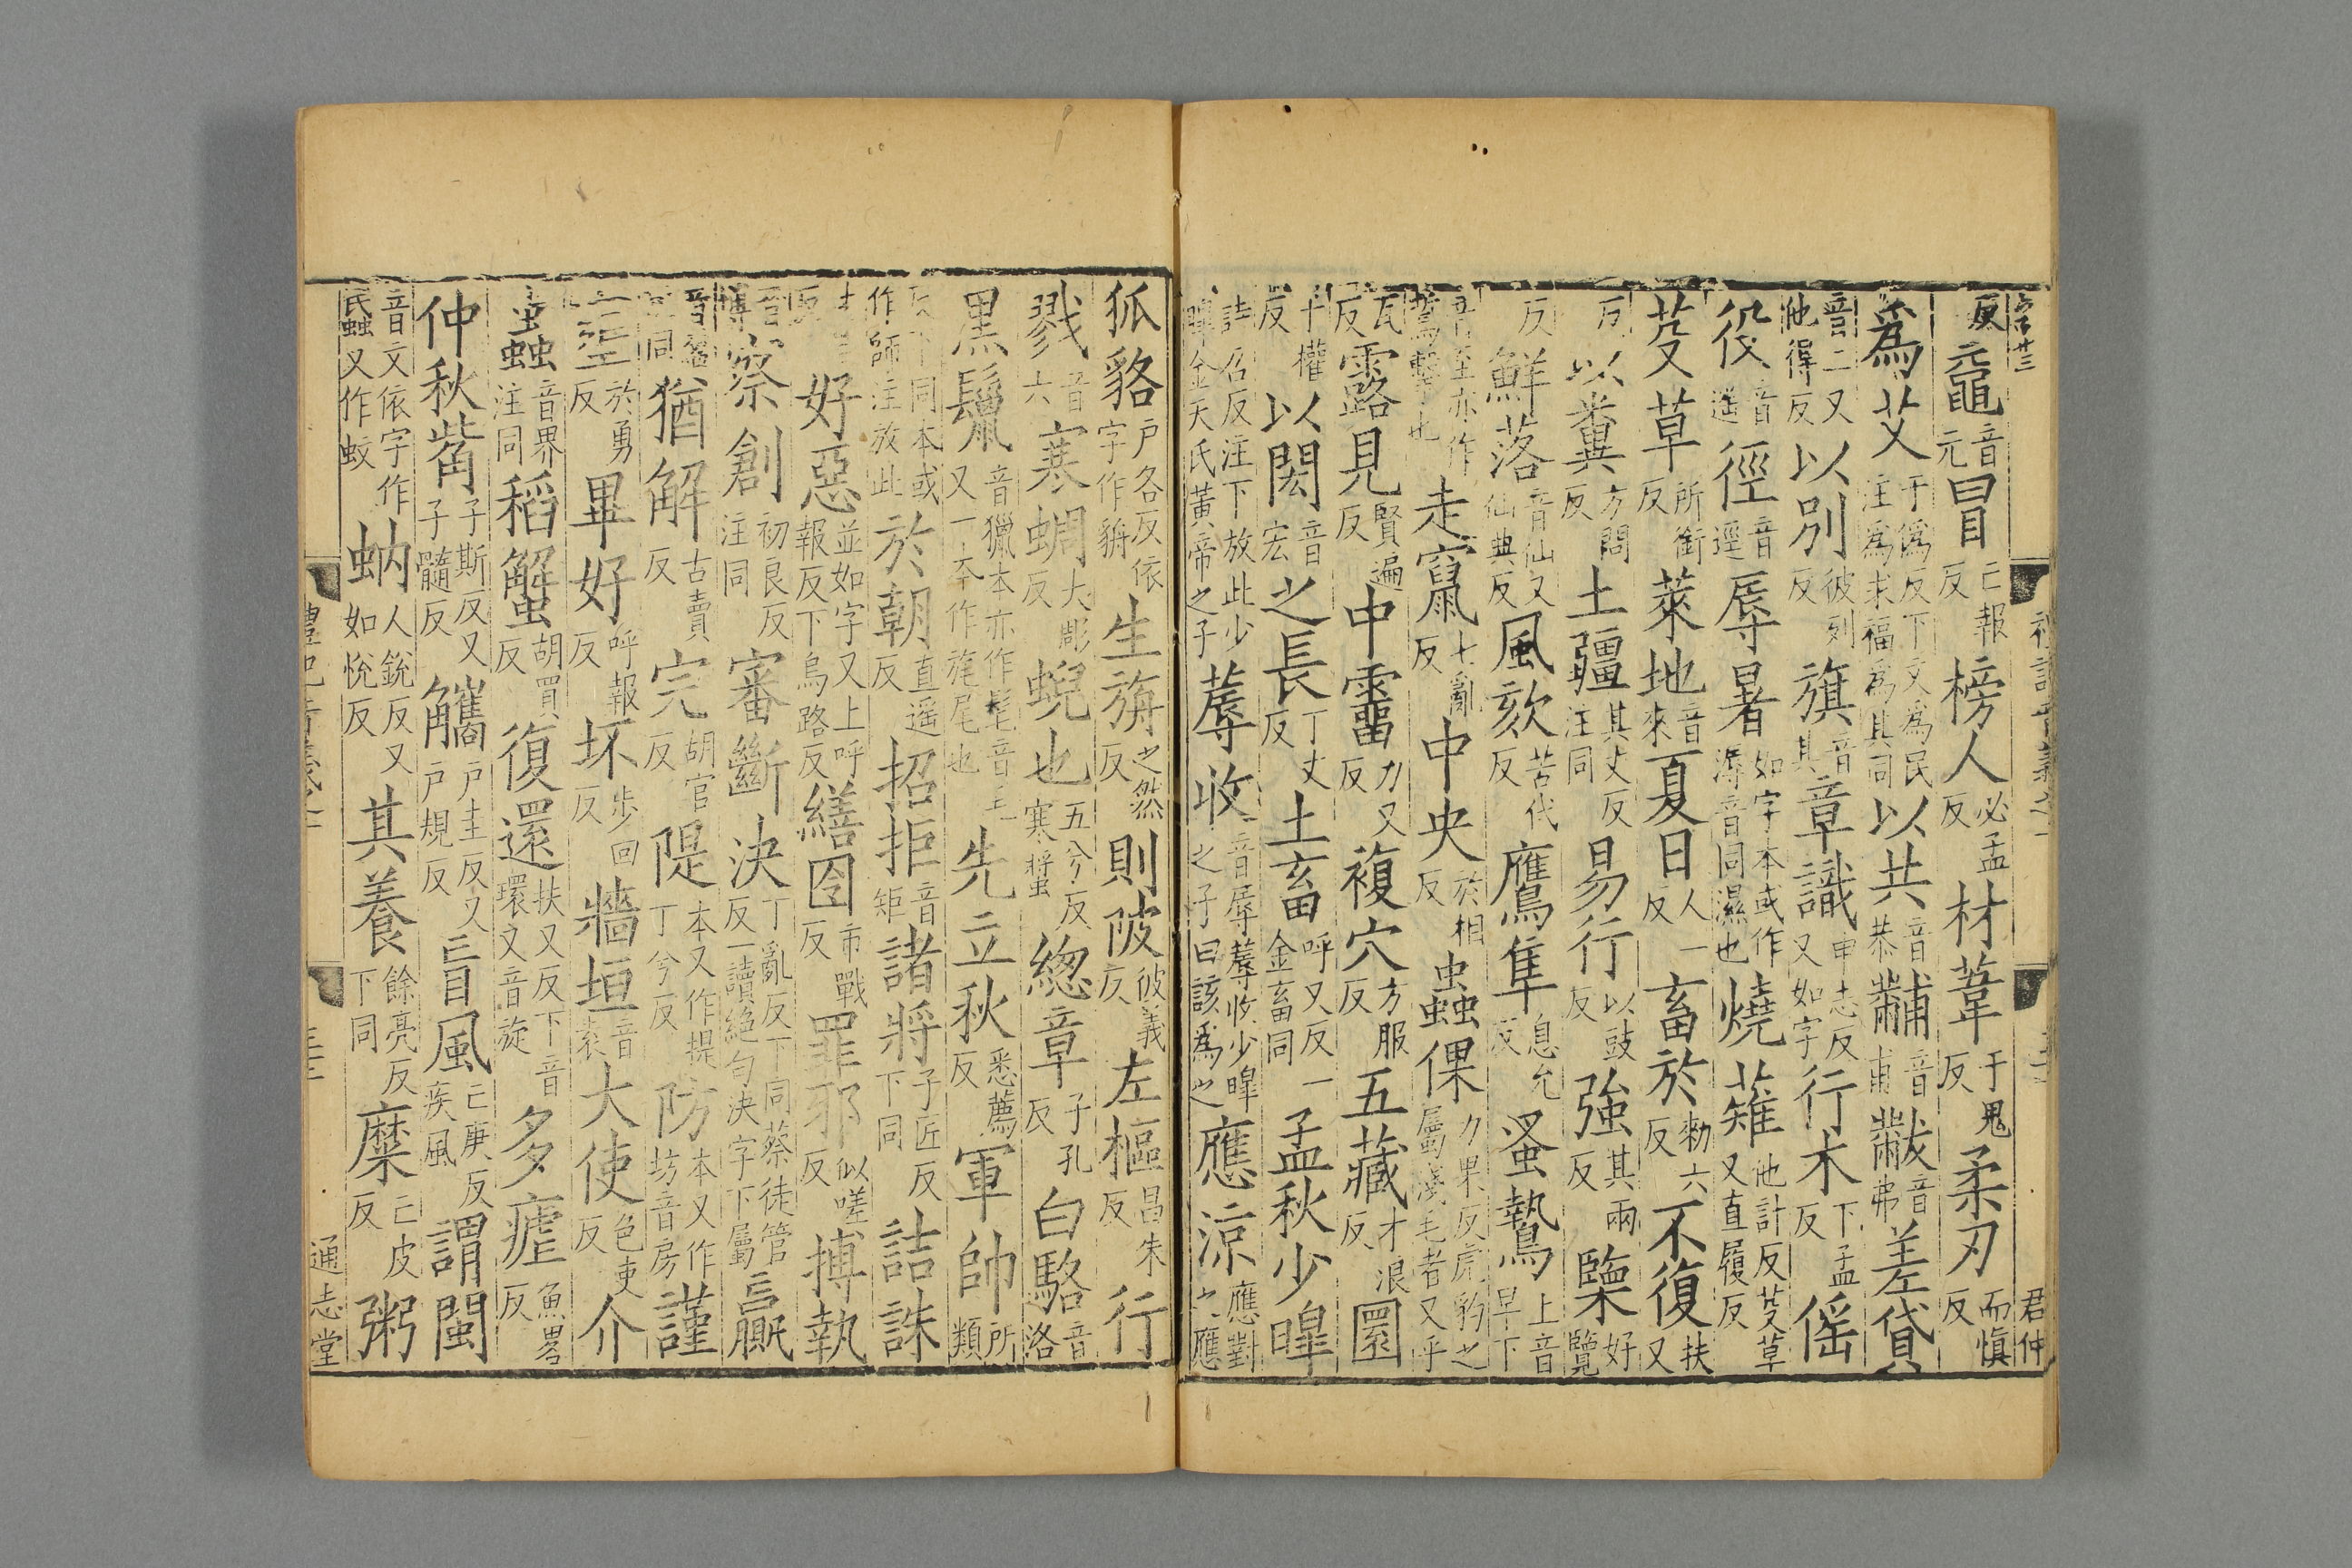 反黿音元冒亡報反榜人必孟反材葦于鬼反柔刃而慎反
為艾于偽反下文為民注為求福為其同以共音恭黼音甫黻音弗差貸
音二又他得反以別彼列反旗音其章識申志反又如字行木下孟反傜
役音遥徑音逕辱暑如字本或作溽音同濕也燒薙他計反芟草又直履反
芟草所銜反萊地音來夏日人一反畜於勑六反不復扶又
反以糞方問反土疆其丈反注同易行以豉反強其兩反㯺好覽
反鮮落音仙又仙典反風欬苦代反鷹隼息允反蚤鷙上音早下
音至亦作走竄七亂反中央於相反蟲倮力果反虎豹之屬淺毛者又乎
瓦反露見賢遍反中霤力又反複穴方服反五藏才浪反圜
于權反以閎音宏之長丁丈反土畜呼又反一金畜同孟秋少皡
詩召反注下放此少皡金天氏黃帝之子蓐收音辱蓐收少皡之子曰該為之應涼應對之應
狐貉戶各反依字作貈生旃之然反則陂彼義反左樞昌朱反行
戮音六寒蜩大彫反蜺也五兮反寒螿總章子孔反白駱音洛
黑鬛音獵本亦作髦音毛又一本作旄尾也先立秋悉薦反軍帥所類
反下同本或作師注放此於朝直遥反招拒音矩諸將子匠反下同詰誅
好惡並如字又上呼報反下烏路反繕囹市戰反罪邪似嗟反搏執
察創初良反注同審斷決丁亂反下同蔡徒管反一讀絕句決字下屬贏
猶解古賣反完胡官反隄本又作提丁兮反防本又作坊音房謹
壅於勇反畢好呼報反坏步回反牆垣音袁大使色吏反介
蟲音界注同稻蟹胡買反復還扶又反下音環又音旋多瘧魚畧反
仲秋觜子斯反又子髓反觿戶圭反又戶規反盲風亡庚反疾風謂閩
音文依字作䘇又作蚊蚋人銳反又如悅反其養餘亮反下同糜亡皮反粥
通志堂